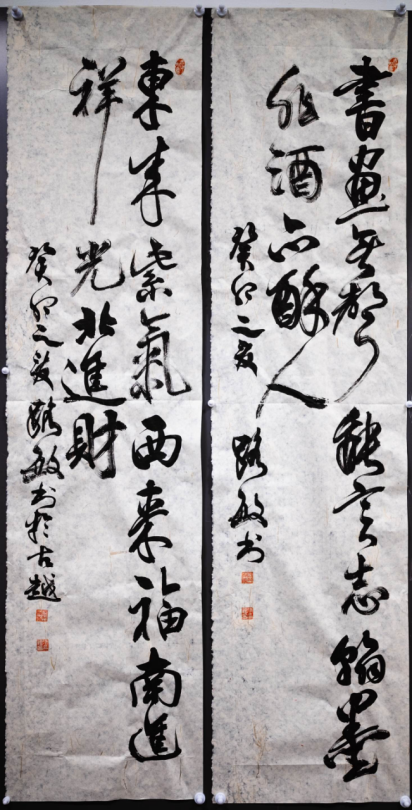 書畫無聲能言志翰墨
非酒亦醉人
癸卯之夏 路敏书
東来紫氣西来福南進
祥光北進財
癸卯之夏路敏书於古越